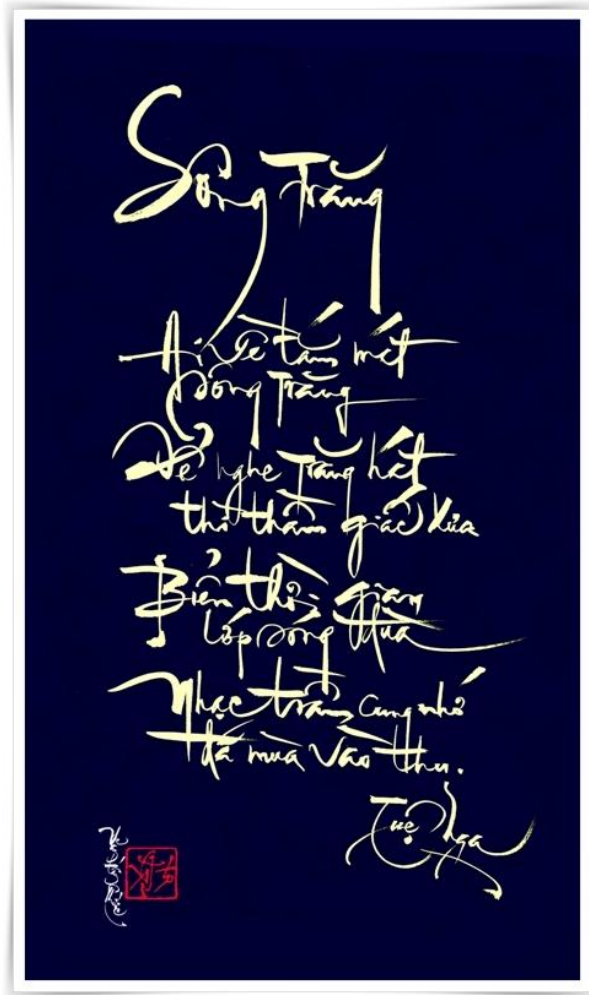 Sông Trăng
Ai về tắm mát
Sông Trăng
Để nghe Trăng hát
thì thầm giấc xưa
Biển thời gian
lớp sóng đùa
Nhạc trầm cung nhớ
đã mùa vào thu.
Tuệ Nga